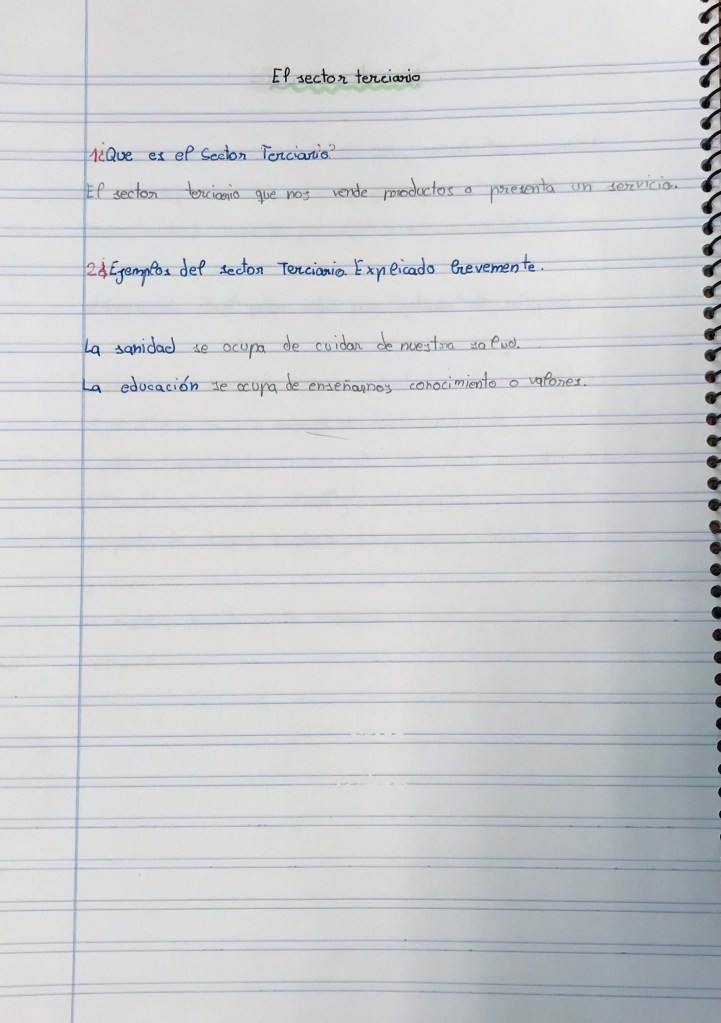 El sector terciario
1¿Que es el Sector Terciario?
El sector terciario que nos vende productos o presenta un servicio.
2¿Ejemplos del sector Terciario. Explicado brevemente.
La sanidad se ocupa de cuidar de nuestra salud.
La educación se ocupa de enseñarnos conocimiento o valores.